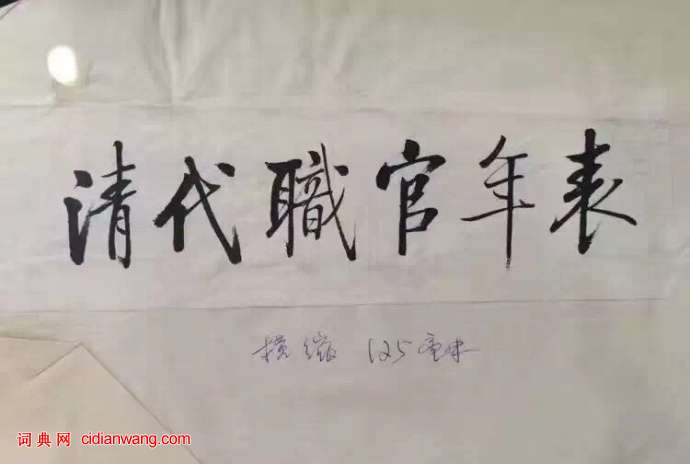 清代職官年表
横缩 12.5厘米
词典网 cidianwang.com